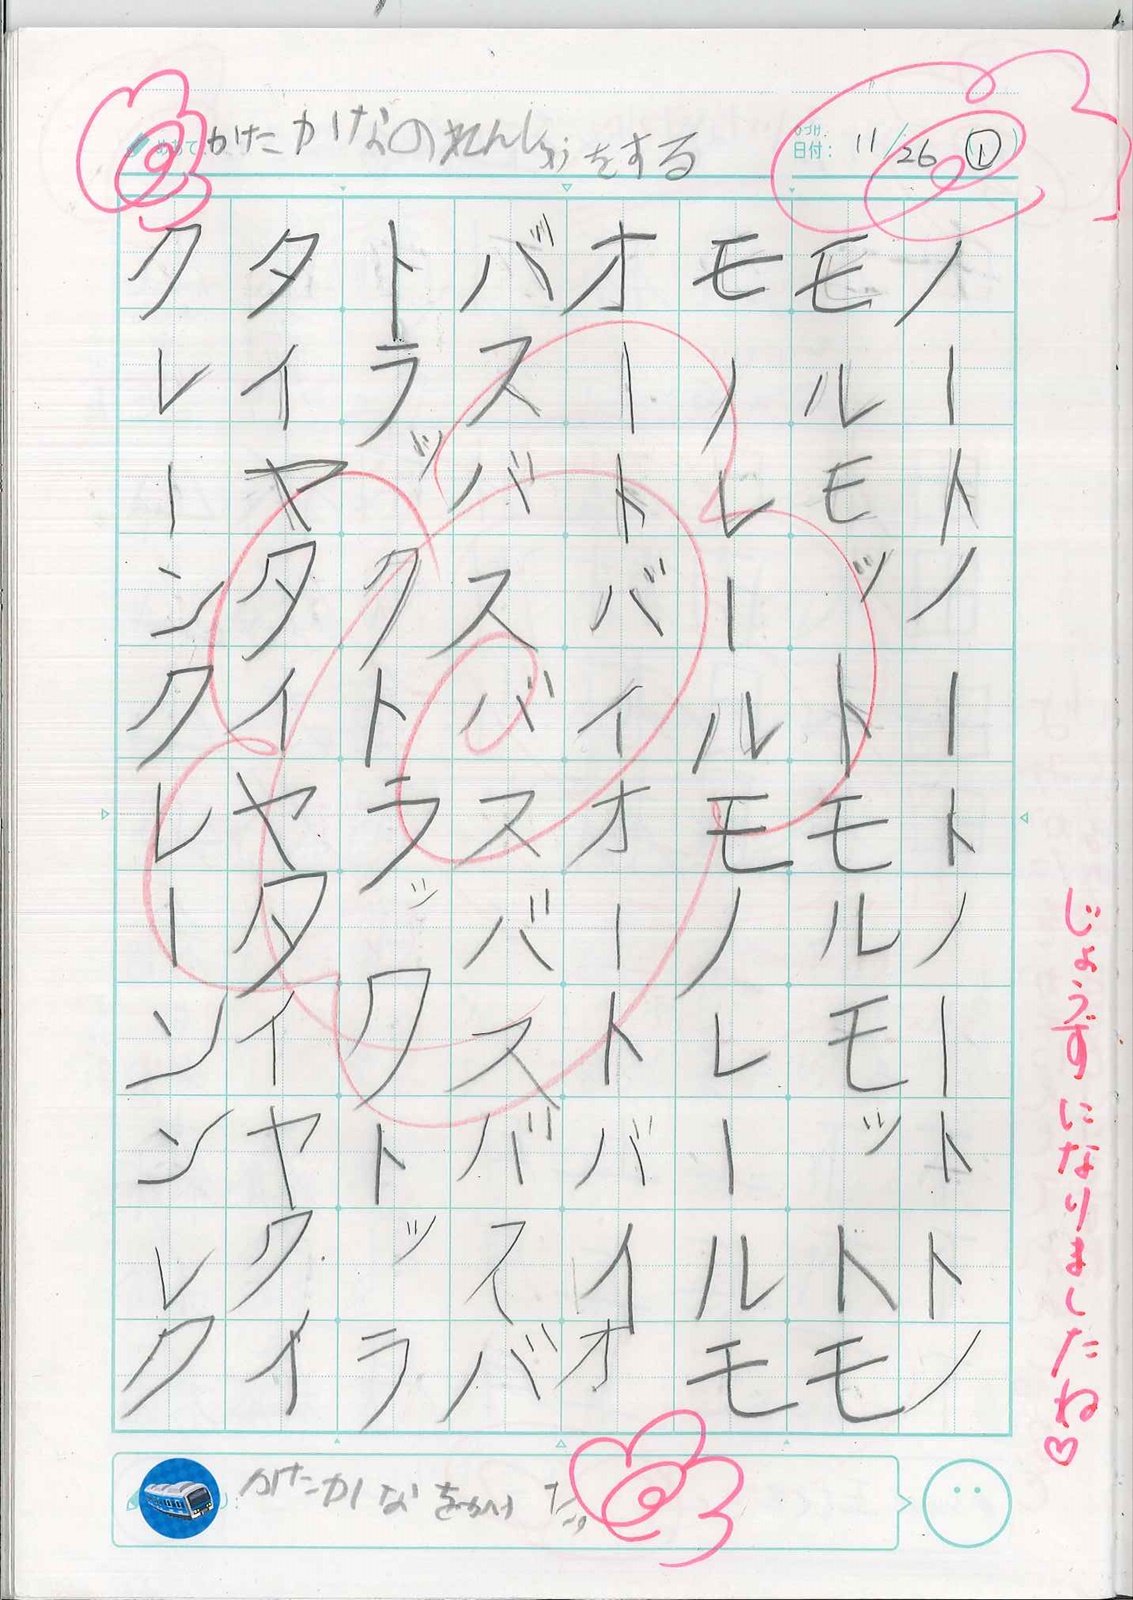 めあて かたかなのれんしゅうをする
ひづけ
日付： 11/26 ①
ノートノートノートトノ
モルモットモルモットモ
モノレールモノレールモ
オートバイオートバイオ
バスバスバスバスバスバ
トラックトラックトッラ
タイヤタイヤタイヤクイ
クレーンクレーンンレク
じょうずになりましたね♡
かたかな